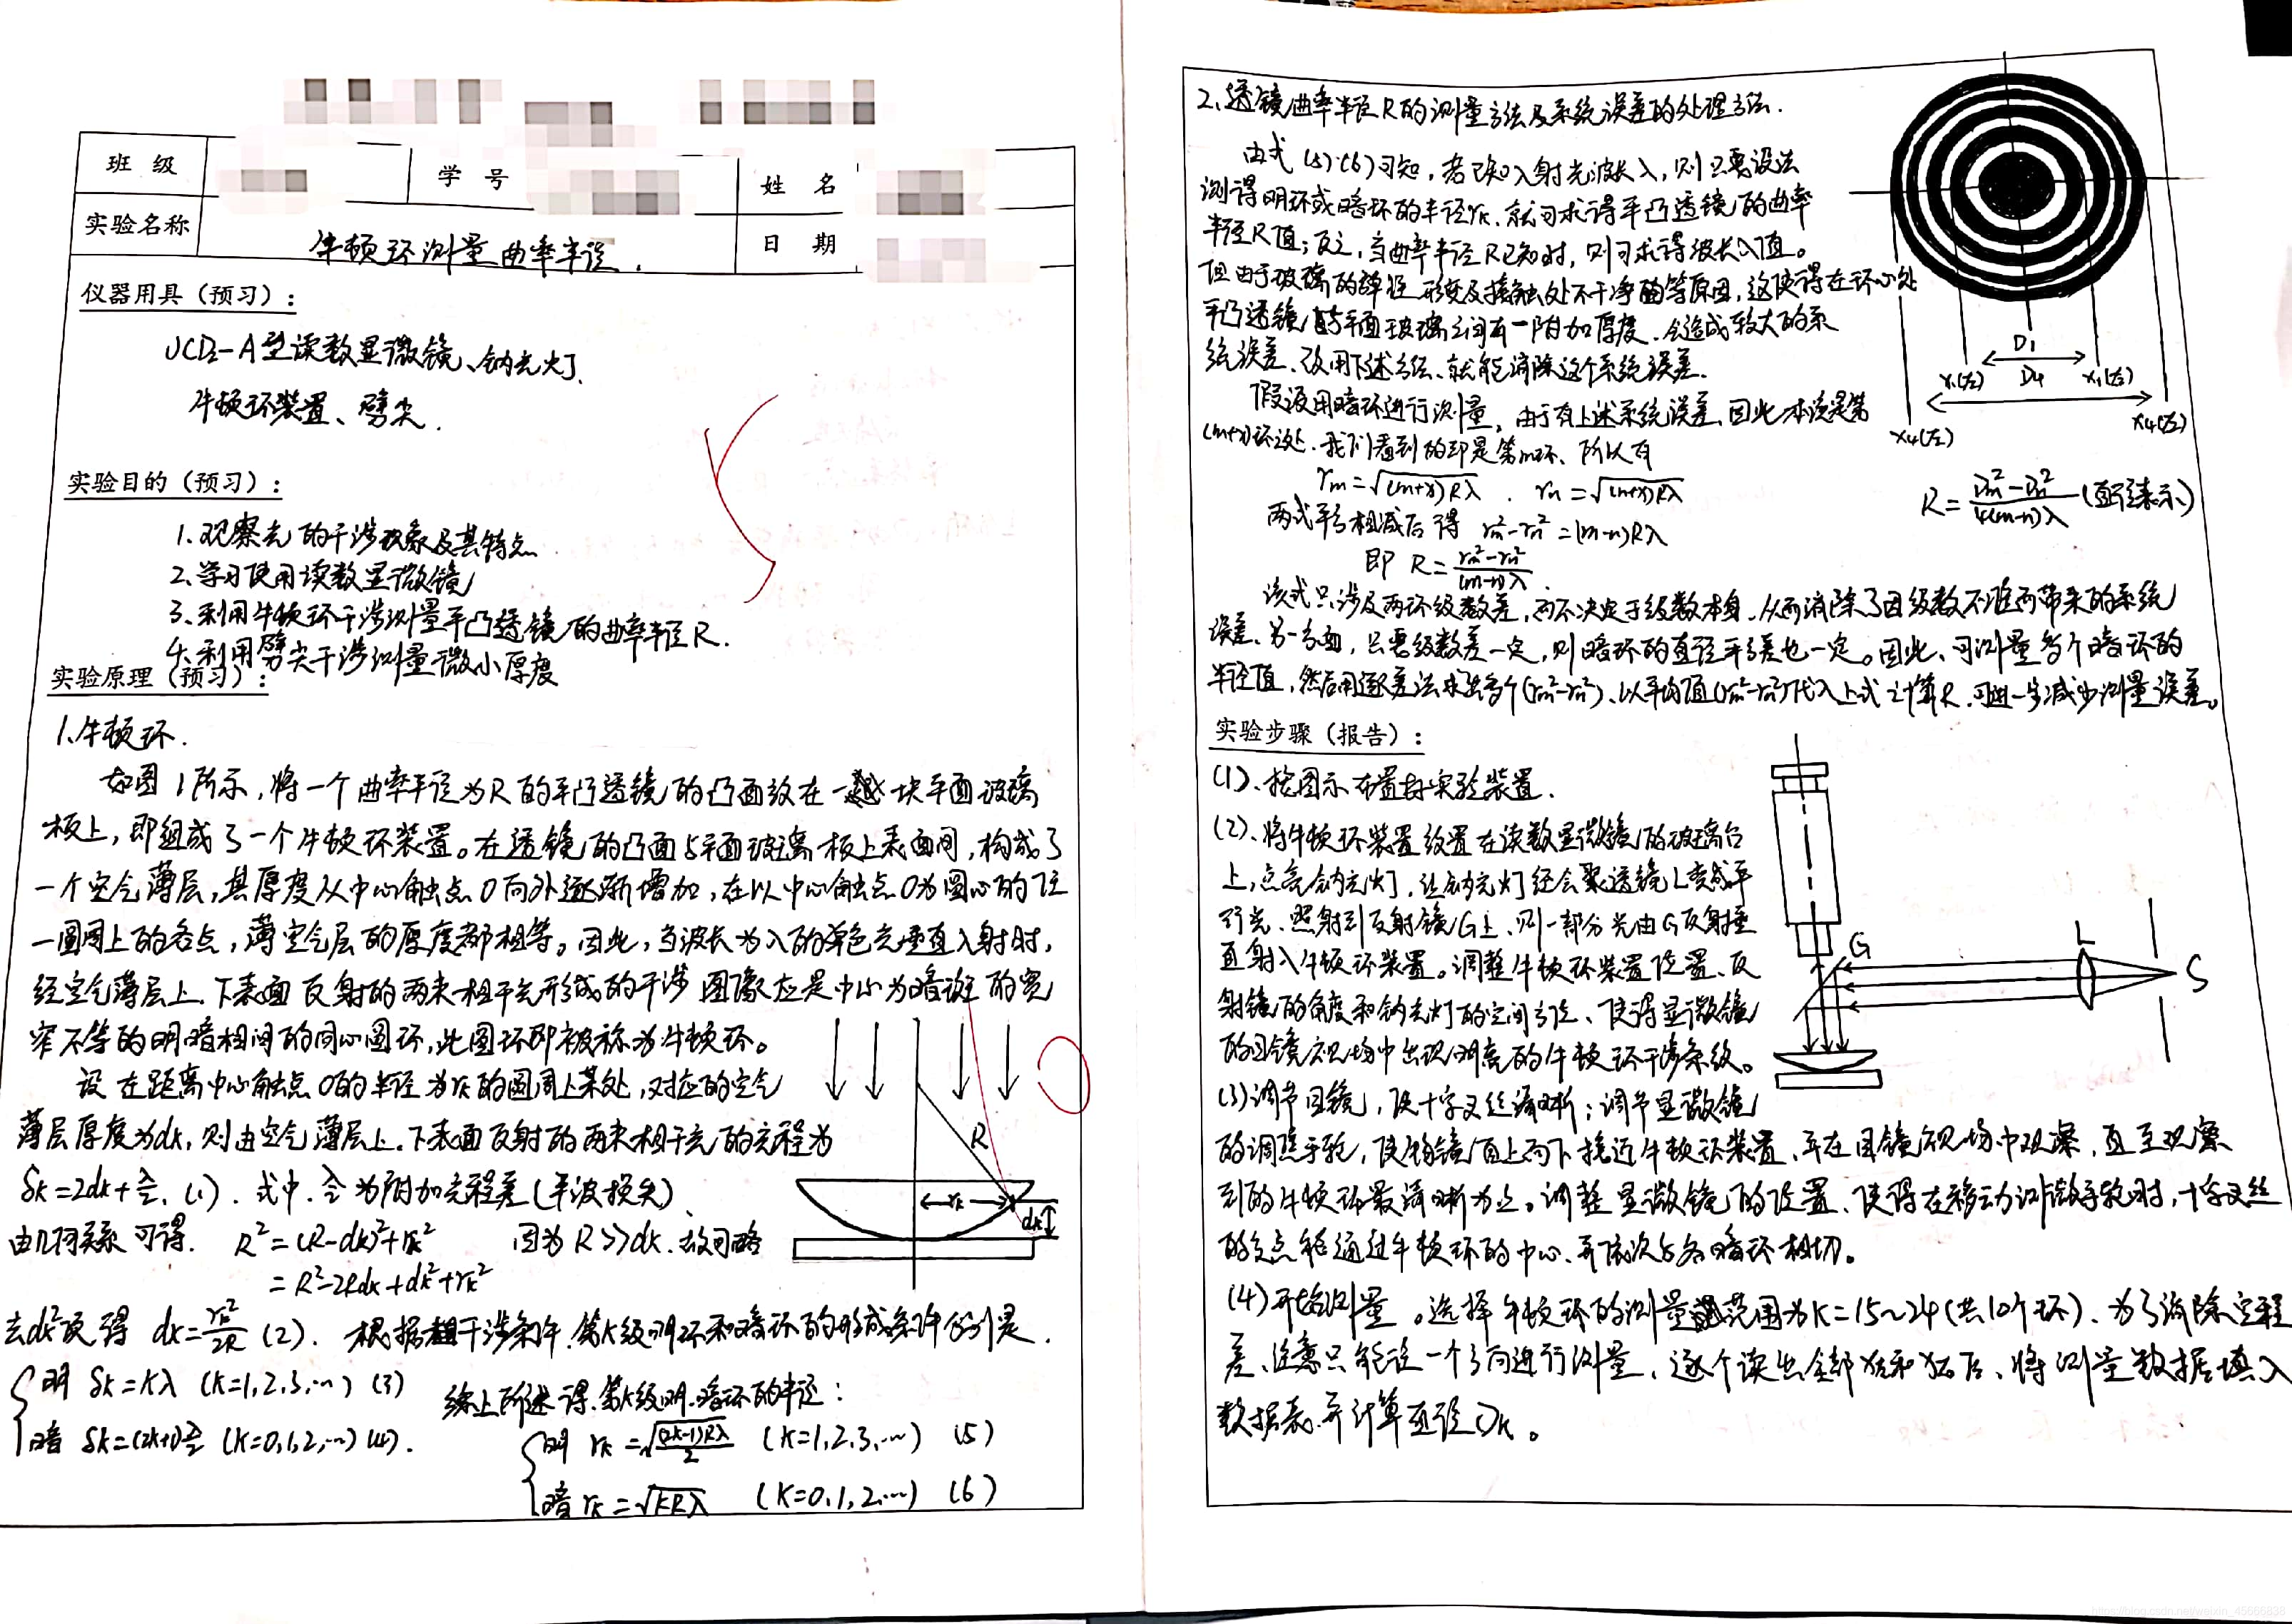 班 级
学 号
姓 名
实验名称
牛顿环测量曲率半径.
日 期
仪器用具（预习）：
JCD₂-A型读数显微镜、钠光灯、
牛顿环装置、劈尖.
实验目的（预习）：
1.观察光的干涉现象及其特点
2.学习使用读数显微镜
3.利用牛顿环干涉测量平凸透镜的曲率半径R.
4.利用劈尖干涉测量微小厚度
实验原理（预习）：
1.牛顿环.
如图1所示,将一个曲率半径为R的平凸透镜的凸面放在一块平面玻璃
板上,即组成了一个牛顿环装置。在透镜的凸面与平面玻璃板上表面间,构成了
一个空气薄层,其厚度从中心触点O向外逐渐增加,在以中心触点O为圆心的任
一圆周上的各点,薄空气层的厚度都相等。因此,当波长为λ的单色光垂直入射时,
经空气薄层上、下表面反射的两束相干光形成的干涉图像应是中心为暗斑的宽
窄不等的明暗相间的同心圆环,此圆环即被称为牛顿环。
设在距离中心触点O的半径为rk的圆周上某处,对应的空气
薄层厚度为dk,则由空气薄层上、下表面反射的两束相干光的光程为
δk=2dk+λ/2, (1). 式中,λ/2为附加光程差(半波损失)、
由几何关系可得. R²=(R-dk)²+rk² 因为R>>dk.故可略
=R²-2Rdk+dk²+rk²
去dk²项得 dk=rk²/2R (2). 根据干涉条件.第K级明环和暗环的形成条件分别是.
明 δk=kλ (k=1,2,3,…) (3)
暗 δk=(2k+1)λ/2 (k=0,1,2,…) (4).
综上所述得.第K级明.暗环的半径：
明 rk=√((2k-1)Rλ/2) (k=1,2,3,…) (5)
暗 rk=√(kRλ) (k=0,1,2,…) (6)
R
rk
dk
2、透镜曲率半径R的测量方法及系统误差的处理方法.
由式(5)(6)可知,若已知入射光波长λ,则只要设法
测得明环或暗环的半径rk.就可求得平凸透镜的曲率
半径R值;反之,当曲率半径R已知时,则可求得波长λ值。
但由于玻璃的弹性形变及接触处不干净等原因,这使得在环心处
平凸透镜与平面玻璃之间有一附加厚度.会造成较大的系
统误差、改用下述方法、就能消除这个系统误差.
假设用暗环进行测量,由于有上述系统误差、因此本该是第
(m+x)环这处.我们看到的却是第m环、所以有
rm=√((m+x)Rλ) . rn=√((n+x)Rλ)
两式平方相减后得 rm²-rn²=(m-n)Rλ
即 R=(rm²-rn²)/((m-n)λ).
D1
x1(左)
D4
x1(右)
x4(左)
x4(右)
R=(Dm²-Dn²)/(4(m-n)λ) (直径表示)
该式只涉及两环级数差,而不决定于级数本身.从而消除了因级数不准而带来的系统
误差、另一方面,只要级数差一定,则暗环的直径平方差也一定。因此、可测量多个暗环的
半径值,然后用逐差法求出多个(rm²-rn²)、以平均值(rm²-rn²)代入上式计算R.可进一步减少测量误差。
实验步骤（报告）：
(1)、按图示布置好实验装置.
(2)、将牛顿环装置放置在读数显微镜的玻璃台
上,点亮钠光灯,让钠光灯经会聚透镜L变成平
行光、照射到反射镜G上、则一部分光由G反射垂
直射入牛顿环装置。调整牛顿环装置位置、反
射镜的角度和钠光灯的空间方位、使得显微镜
的目镜视场中出现明亮的牛顿环干涉条纹。
(3)调节目镜,使十字叉丝清晰;调节显微镜
的调焦手轮,使物镜自上而下接近牛顿环装置、并在目镜视场中观察,直至观察
到的牛顿环最清晰为止。调整显微镜的位置、使得在移动测微手轮时,十字叉丝
的交点能通过牛顿环的中心、并依次与各暗环相切。
(4)开始测量。选择牛顿环的测量范围为K=15~24(共10个环)、为了消除空程
差、注意只能沿一个方向进行测量,逐个读出全部x左和x右后、将测量数据填入
数据表.并计算直径Dk。
G
L
S